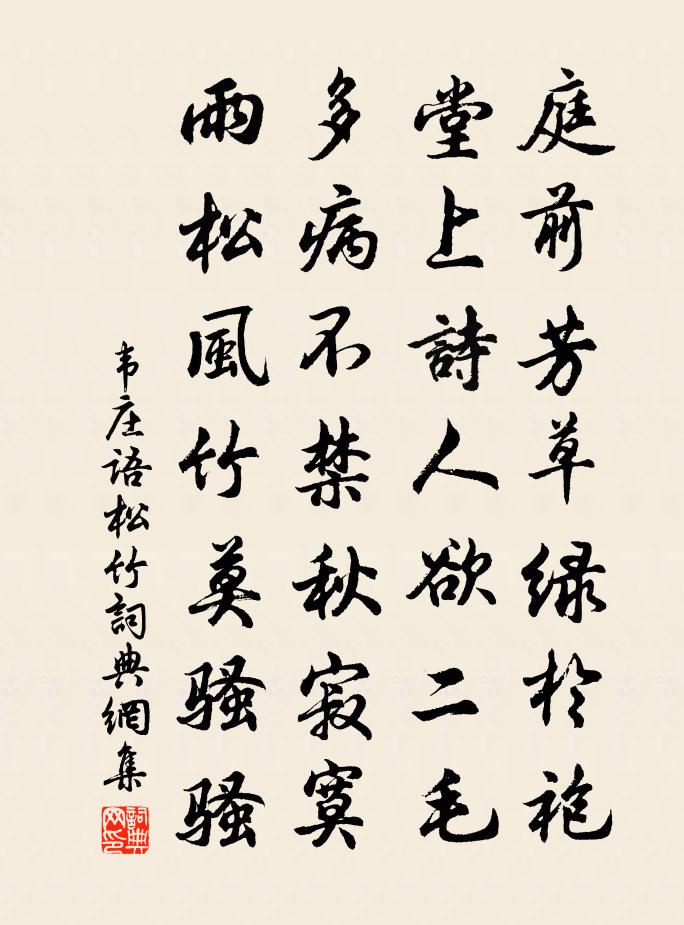 庭前芳草綠於袍
堂上詩人欲二毛
多病不禁秋寂寞
雨松風竹莫騷騷
韦庄語松竹詞典網集
詞典網印